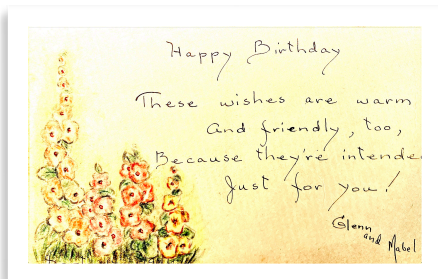 Happy Birthday
These wishes are warm
and friendly, too,
Because they're intende
Just for you!
Glenn
and Mabel